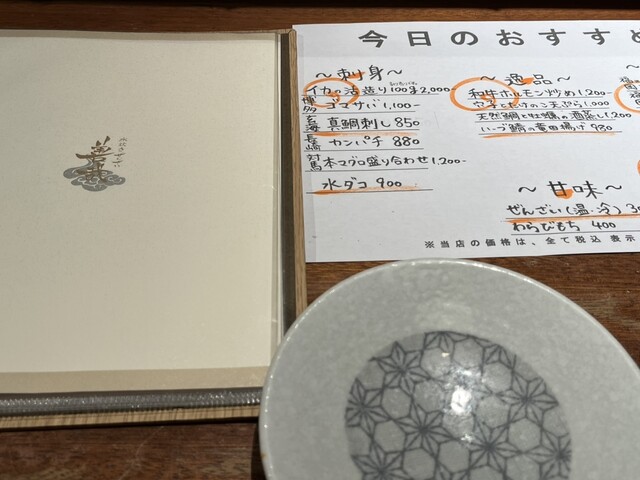 今日のおすすめ
～刺身～
イカの活造り100g2,000-
博多 ゴマサバ 1,100-
玄海 真鯛刺し 850
長崎 カンパチ 880
対馬 本マグロ盛り合わせ 1,200-
水ダコ 900
～逸品～
和牛ホルモン炒め 1,200-
天ぷら 1,000
天然鯛と牡蠣の酒蒸し 1,200
竜田揚げ 930
～甘味～
ぜんざい(温・冷) 30
わらびもち 400
※当店の価格は、全て税込 表示